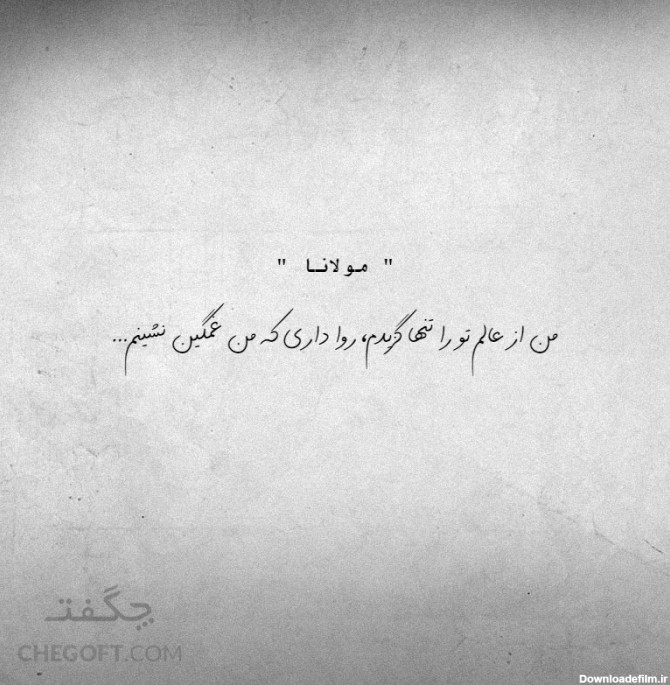 " مولانا "
من از عالم تو را تنها گزیدم، روا داری که من غمگین نشینم...
چگفت
CHEGOFT.COM
Downloadefilm.ir